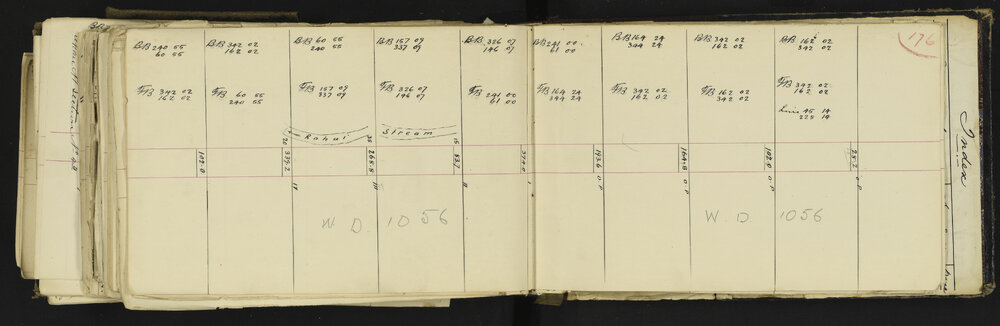 176
BB 240 55
60 55
BB 342 02
162 02
BB 60 55
240 55
BB 157 09
337 09
BB 326 07
146 07
BB 241 00
61 00
BB 164 24
344 24
BB 342 02
162 02
BB 162 02
342 02
FB 342 02
162 02
FB 60 55
240 55
FB 157 09
337 09
FB 326 07
146 07
FB 241 00
61 00
FB 164 24
344 24
FB 342 02
162 02
FB 162 02
342 02
FB 342 02
162 02
Line 45 14
225 14
Rohui Stream
20
35
15
102.0
339.2
265.8
83.1
374.0
193.6
164.8
102.0
25.2
0 P
0 P
0 P
0 P
W. D. 1056
W. D. 1056
Index